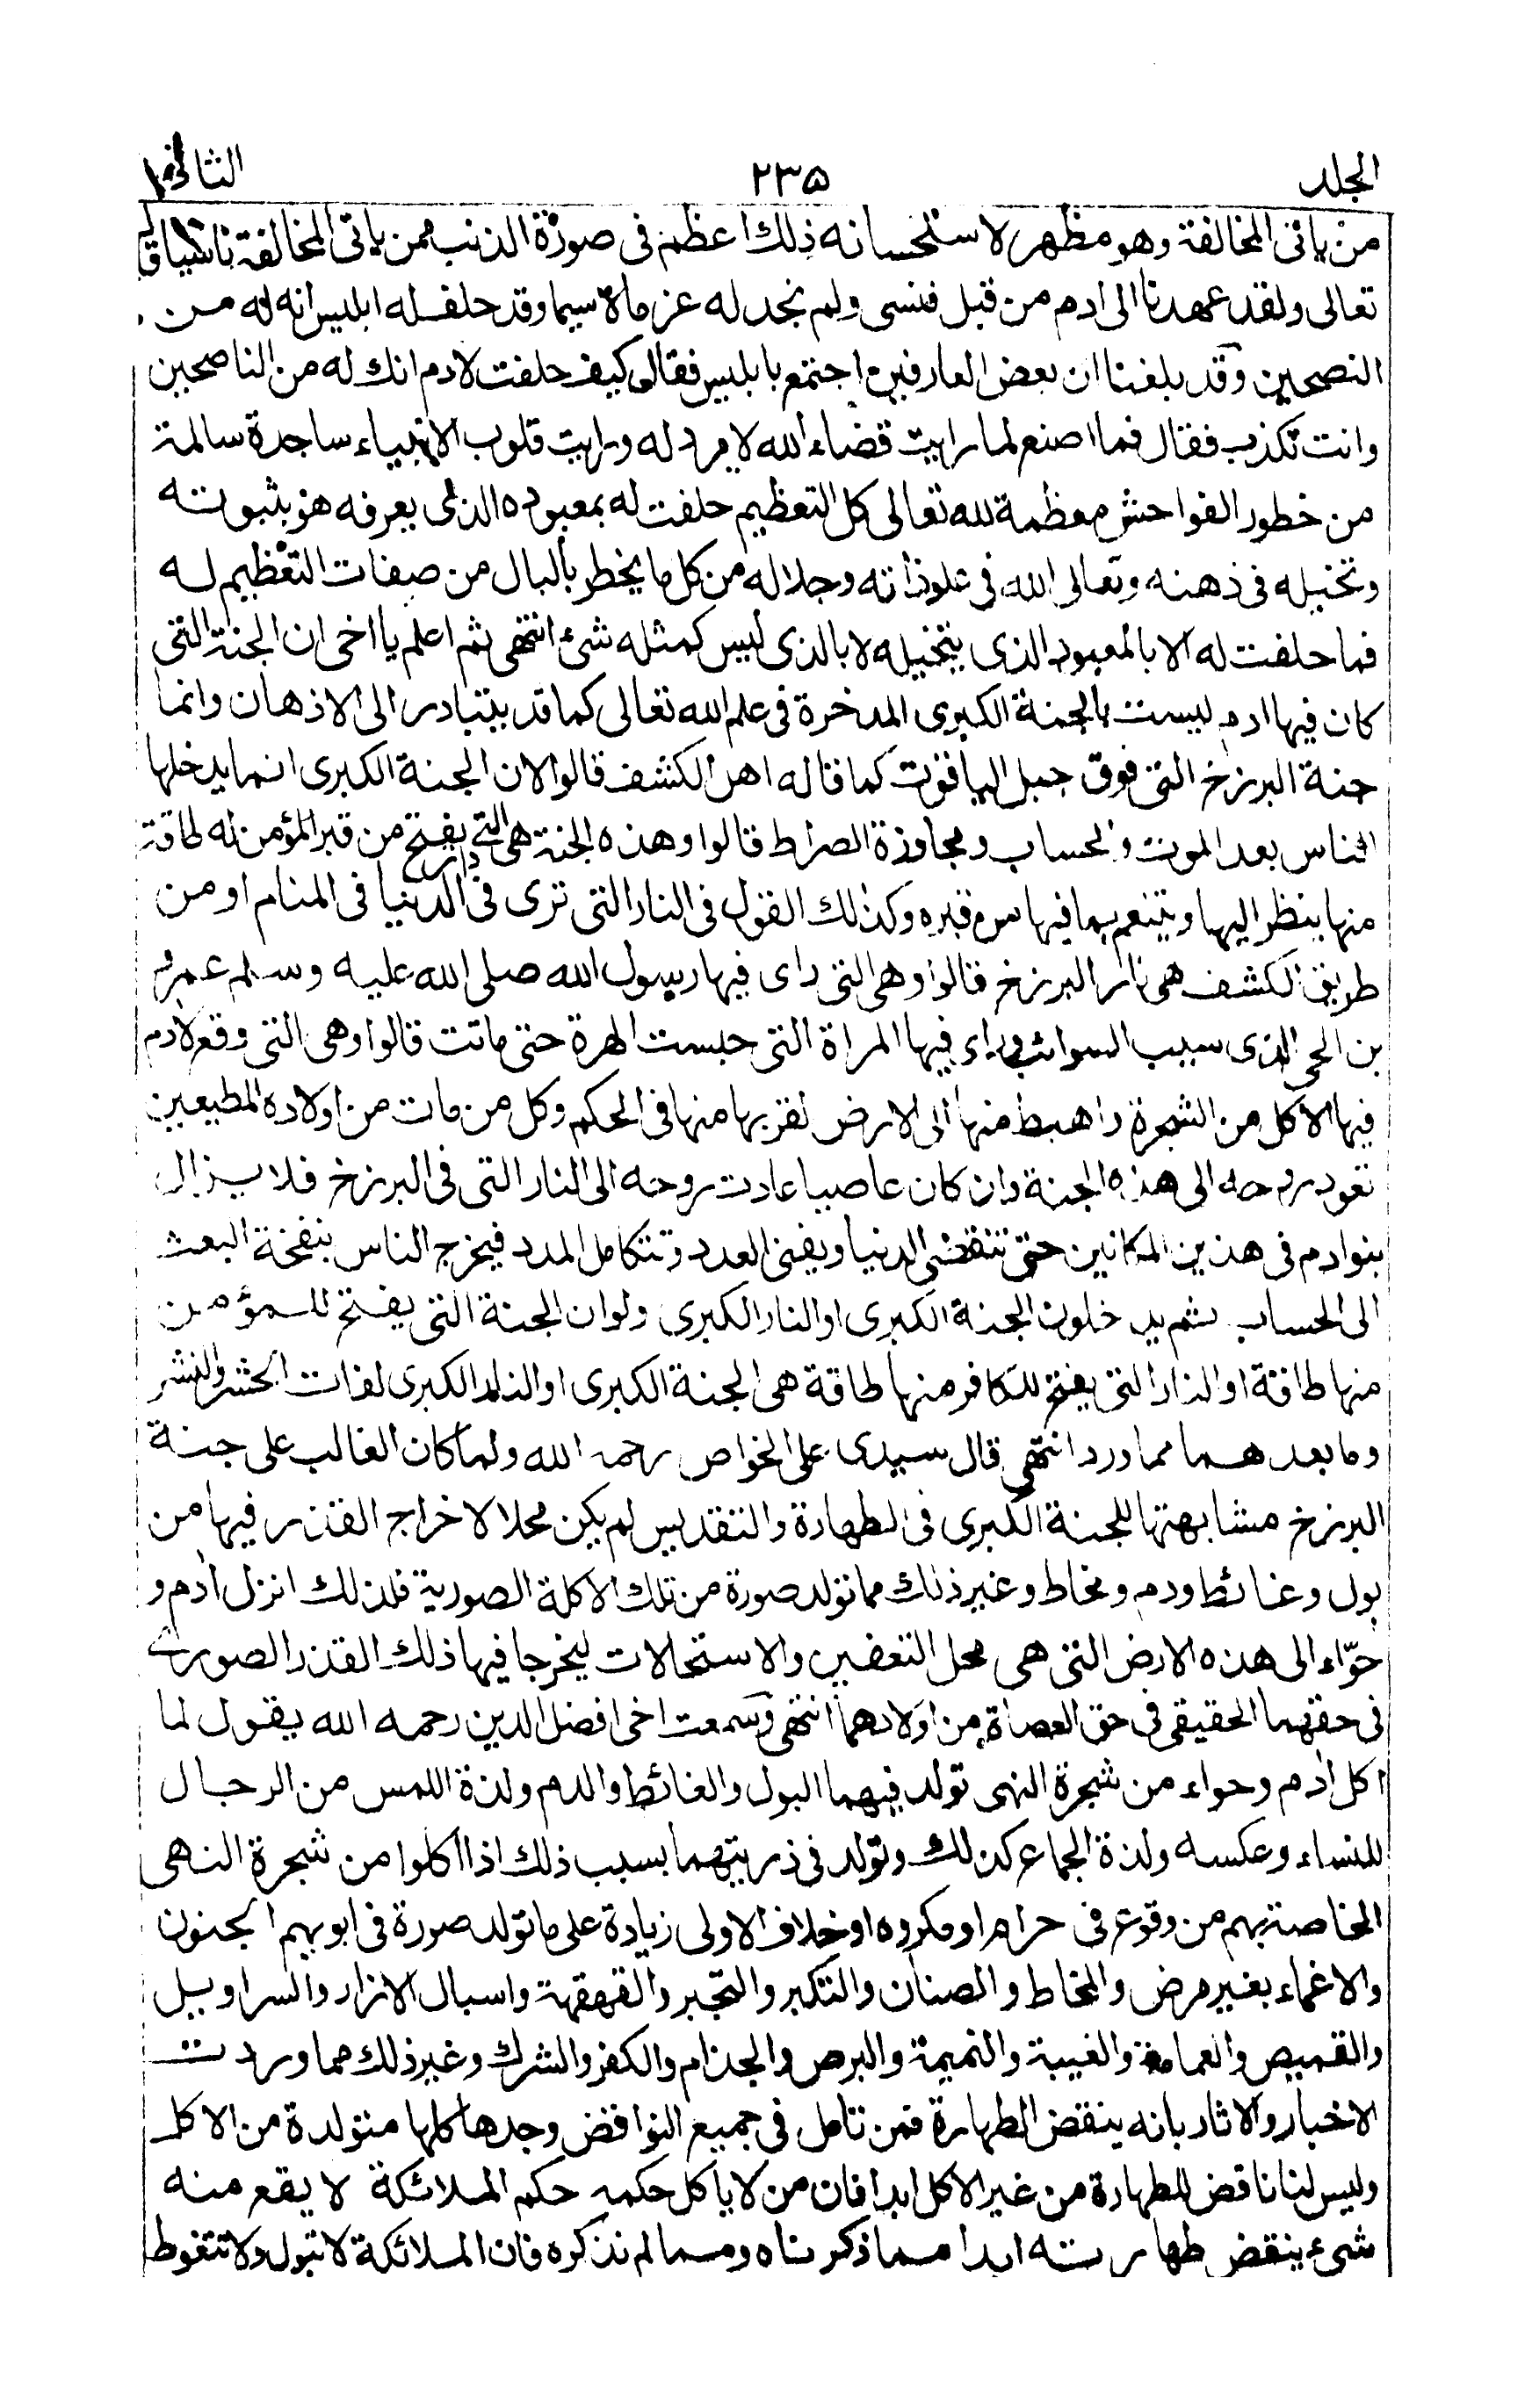 الجلد ٢٣٥ الثاني
من ياتى المخالفة وهو مظهر لاستحسانه ذلك اعظم فى صورة الذنب ممن ياتى المخالفة
تعالى ولقد عهدنا الى ادم من قبل فنسى ولم نجد له عزما لا سيما وقد حلف له ابليس انه له من
النصحين وقد بلغنا ان بعض العارفين اجتمع بابليس فقال كيف حلفت لادم انك له من الناصحين
وانت تكذب فقال فما اصنع لما رايت قضاء الله لا مرد له ورايت قلوب الانبياء ساجدة سالمة
من خطور الفواحش معظمة لله تعالى كل التعظيم حلفت له بمعبوده الذى يعرفه هو بثبوته
وتخيله فى ذهنه وتعالى الله فى علو ذاته وجلاله من كل ما يخطر بالبال من صفات التعظيم له
فما حلفت له الا بالمعبود الذى يتخيله لا بالذى ليس كمثله شئ انتهى ثم اعلم يا اخى ان الجنة التى
كان فيها ادم ليست بالجنة الكبرى المدخرة فى علم الله تعالى كما قد يتبادر الى الاذهان وانما
جنة البرزخ التى فوق جبل الياقوت كما قاله اهل الكشف قالوا لان الجنة الكبرى انما يدخلها
الناس بعد الموت والحساب ومجاوزة الصراط قالوا وهذه الجنة هى التى يفتح من قبر المؤمن له طاقة
منها ينظر اليها ويتنعم بما فيها من قبره وكذلك القول فى النار التى ترى فى دار الدنيا فى المنام او من
طريق الكشف هى نار البرزخ قالوا وهى التى راى فيها رسول الله صلى الله عليه وسلم عمرو
بن لحى الذى سيب السوائب وراى فيها المراة التى حبست الهرة حتى ماتت قالوا وهى التى وقع لادم
فيها الاكل من الشجرة واهبط منها الى الارض لقربها منها فى الحكم وكل من مات من اولاده المطيعين
تعود روحه الى هذه الجنة وان كان عاصيا عادت روحه الى النار التى فى البرزخ فلا يزال
بنو ادم فى هذين المكانين حتى تنقضى الدنيا ويفنى العدد وتتكامل المدد فيخرج الناس بنفخة البعث
الى الحساب ثم يدخلون الجنة الكبرى او النار الكبرى ولو ان الجنة التى يفتح للمؤمن
منها طاقة او النار التى يفتح للكافر منها طاقة هى الجنة الكبرى او النار الكبرى لفات الحشر والنشر
وما بعدهما مما ورد انتهى قال سيدى على الخواص رحمه الله ولما كان الغالب على جنة
البرزخ مشابهتها للجنة الكبرى فى الطهارة والتقديس لم يكن محلا لاخراج القذر فيها من
بول وغائط ودم ومخاط وغير ذلك مما تولد صورة من تلك الاكلة الصورية فلذلك انزل ادم و
حوّاء الى هذه الارض التى هى محل التعفين والاستحالات ليخرجا فيها ذلك القذر الصورى
فى حقهما الحقيقى فى حق العصاة من اولادهما انتهى وسمعت اخى افضل الدين رحمه الله يقول لما
اكل ادم وحواء من شجرة النهى تولد فيهما البول والغائط والدم ولذة اللمس من الرجال
للنساء وعكسه ولذة الجماع كذلك وتولد فى ذريتهما بسبب ذلك اذا اكلوا من شجرة النهى
الخاصة بهم من وقوع فى حرام او مكروه او خلاف الاولى زيادة على ما تولد صورة فى ابويهم الجنون
والاغماء بغير مرض والمخاط والصنان والتكبر والتجبر والقهقهة واسبال الازار والسراويل
والقميص والعمامة والغيبة والنميمة والبرص والجذام والكفر والشرك وغير ذلك مما وردت
الاخبار والاثار بانه ينقض الطهارة فمن تامل فى جميع النواقض وجدها كلها متولدة من الاكل
وليس لنا ناقض للطهارة من غير الاكل ابدا فان من لا ياكل حكمه حكم الملائكة لا يقع منه
شىء ينقض طهارته ابدا مما ذكرناه ومما لم نذكره فان الملائكة لا تبول ولا تتغوط